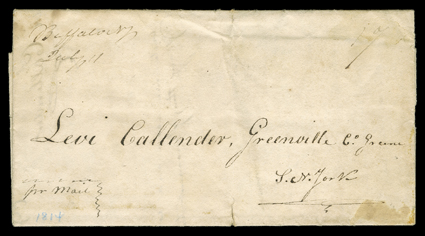 Buffalo N.Y.
July 11
Levi Callender, Greenville Co. Greene
S. N. York
pr Mail
1814